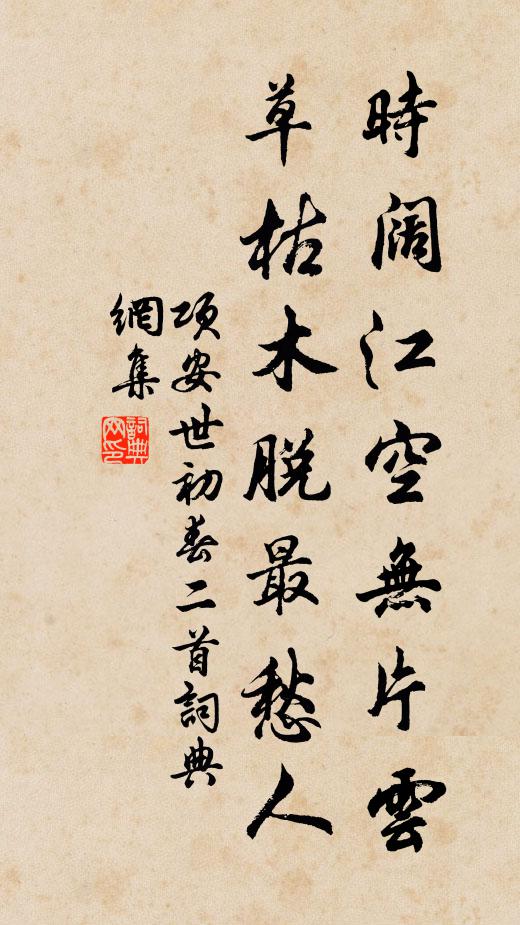 時闊江空無片雲
草枯木脱最愁人
項安世初春二首詞典
網集
詞典
网印